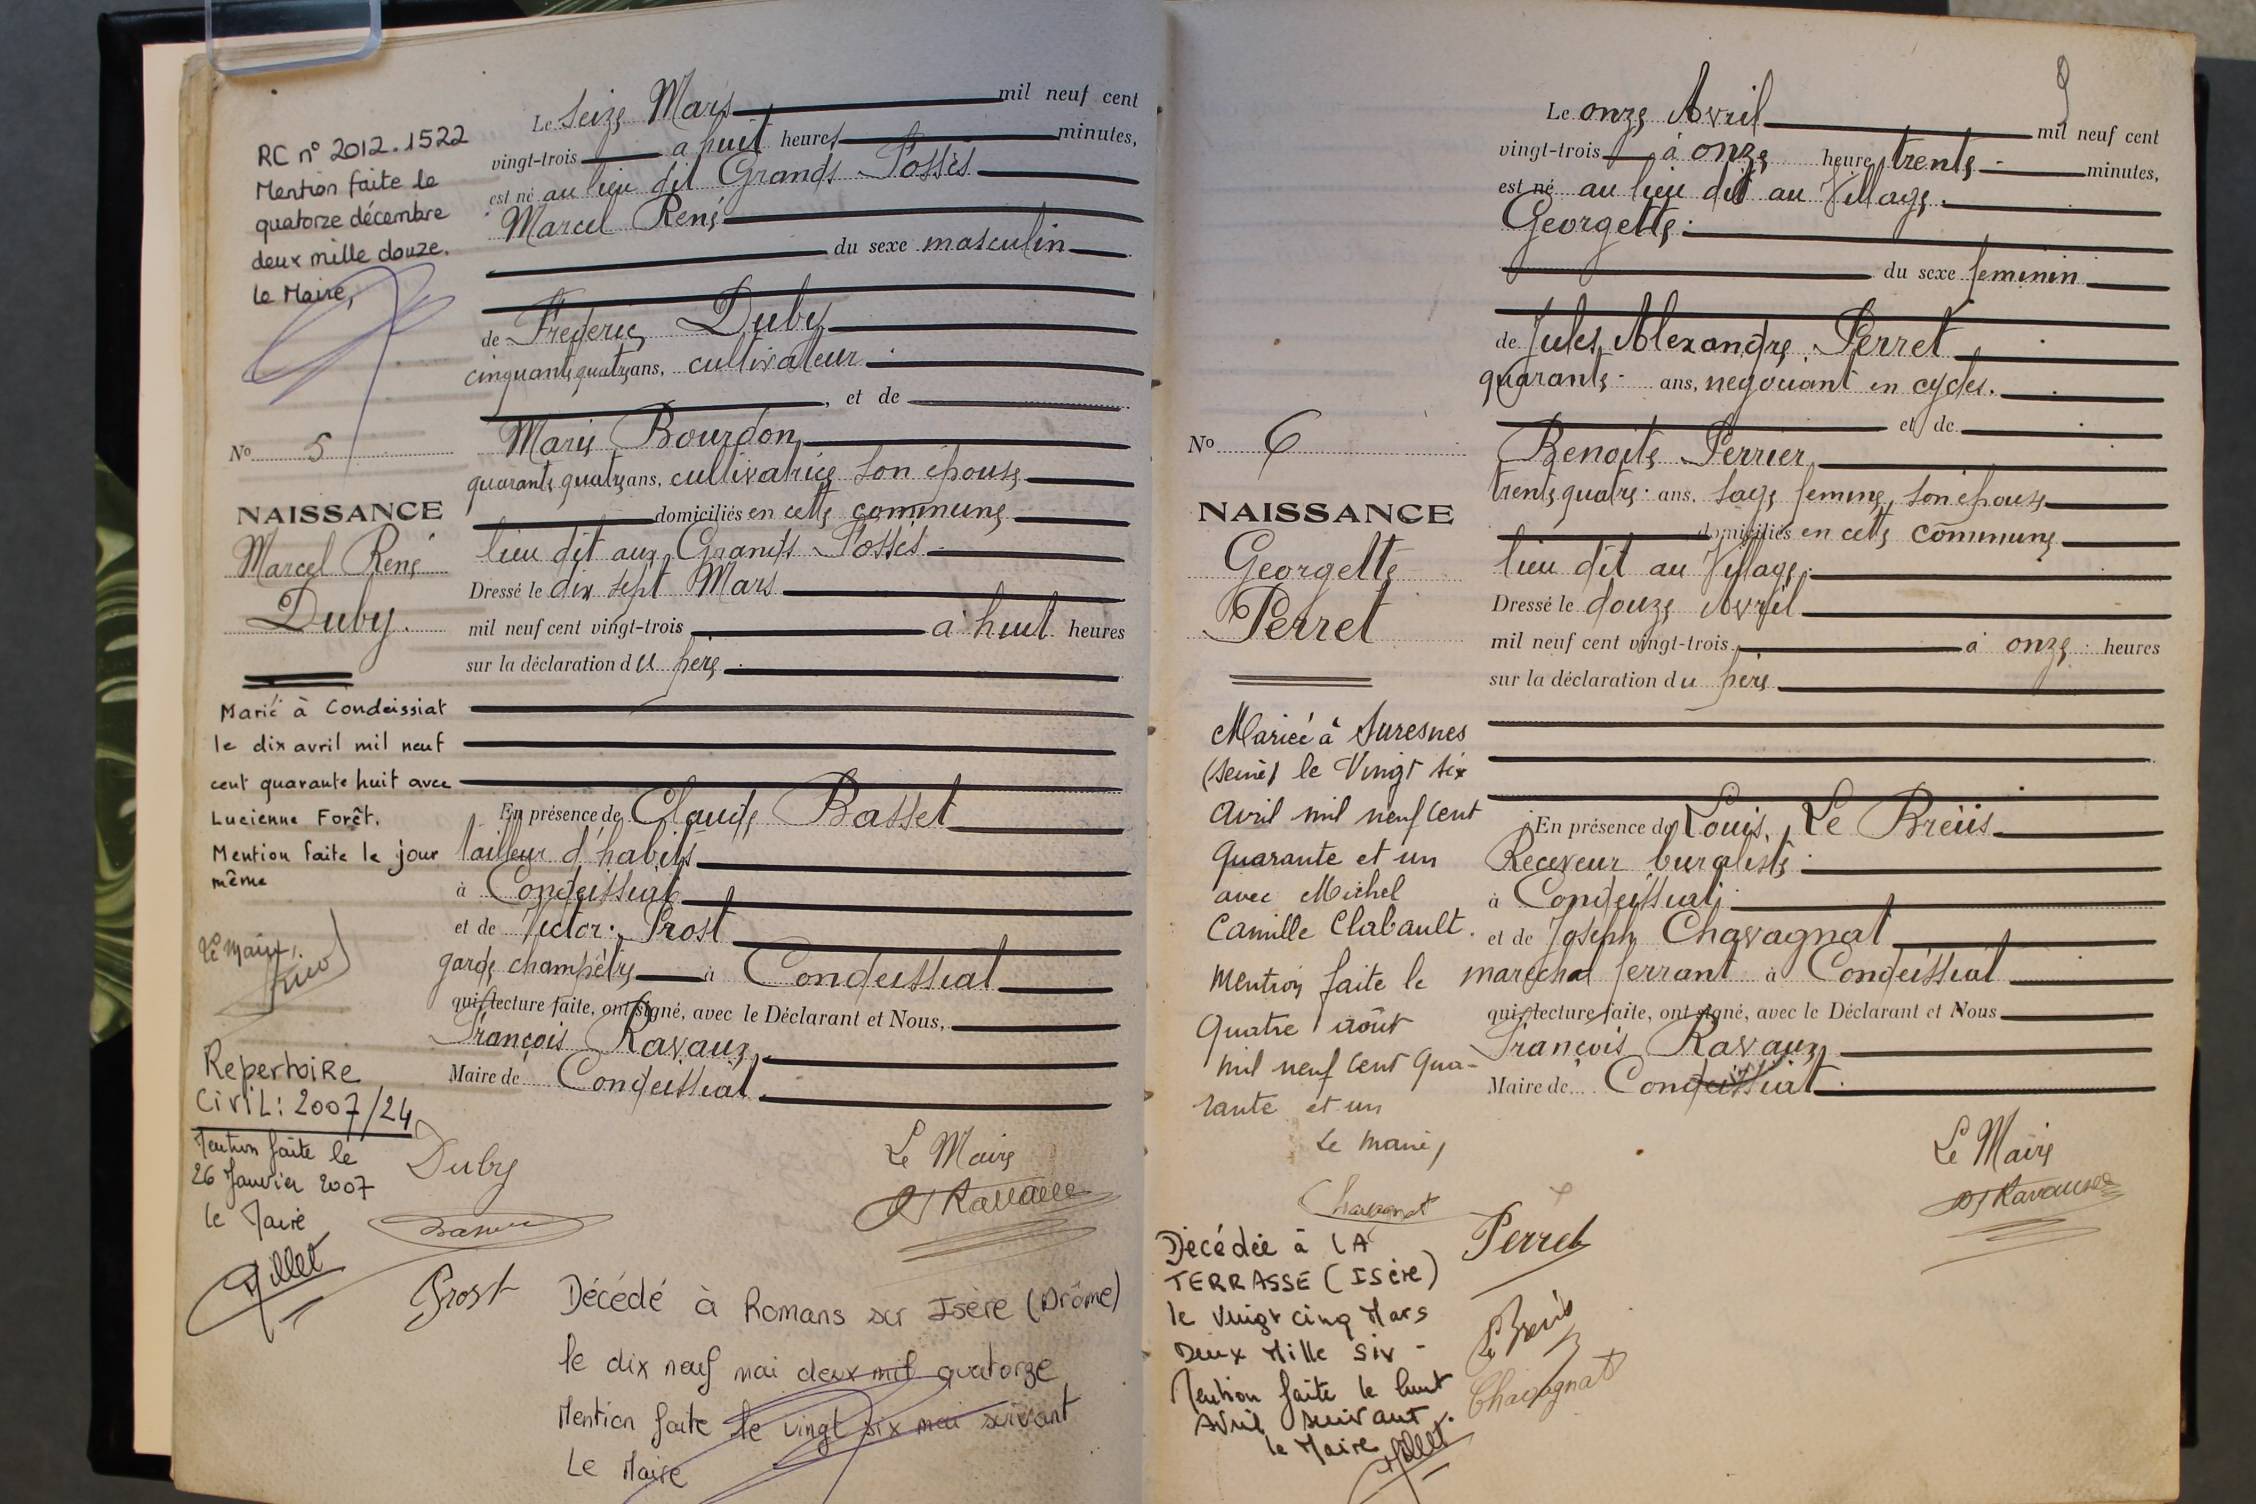 RC nº 2012.1522
Mention faite le
quatorze décembre
deux mille douze.
le Maire,
Nº 5
NAISSANCE
Marcel René
Duby.
Marié à Condeissiat
le dix avril mil neuf
cent quarante huit avec
Lucienne Forêt.
Mention faite le jour
même
Le Maire,
Repertoire
Civil: 2007/24
Mention faite le
26 Janvier 2007
le Maire
Millet
Le Seize Mars mil neuf cent
vingt-trois à huit heures minutes,
est né au lieu dit Grands Fossés
Marcel René
du sexe masculin
de Frederic Duby
cinquante quatre ans, cultivateur
, et de
Marie Bourdon
quarante quatre ans, cultivatrice son épouse
domiciliés en cette commune
lieu dit aux Grands Fossés
Dressé le dix sept Mars
mil neuf cent vingt-trois à huit heures
sur la déclaration du père
En présence de Claude Basset
tailleur d'habits
à Condeissiat
et de Victor Prost
garde champêtre à Condeissiat
qui, lecture faite, ont signé, avec le Déclarant et Nous,
François Ravaux
Maire de Condeissiat
Duby
Le Maire
Ravaux
Basset
Prost
Décédé à Romans sur Isère (Drôme)
le dix neuf mai deux mil quatorze
Mention faite le vingt six mai suivant
Le Maire
Nº 6
NAISSANCE
Georgette
Perret
Mariée à Suresnes
(Seine) le Vingt six
avril mil neuf cent
quarante et un
avec Michel
Camille Clabault.
Mention faite le
Quatre août
mil neuf cent qua-
rante et un
Le maire,
Chavagnat
Décédée à LA
TERRASSE (Isère)
le vingt cinq Mars
Deux Mille six -
Mention faite le huit
Avril suivant.
le Maire
Millet
Le onze Avril mil neuf cent
vingt-trois à onze heure trente minutes,
est né au lieu dit au Village.
Georgette.
du sexe feminin
de Jules Alexandre Perret
quarante ans, négociant en cycles.
et de
Benoite Perrier
trente quatre ans, sage femme, son épouse
domiciliés en cette commune
lieu dit au Village.
Dressé le douze Avril
mil neuf cent vingt-trois à onze heures
sur la déclaration du père
En présence de Louis Le Breüs
Receveur buraliste
à Condeissiat
et de Joseph Chavagnat
marechal ferrant à Condeissiat
qui, lecture faite, ont signé, avec le Déclarant et Nous
François Ravaux
Maire de Condeissiat
Le Maire
Ravaux
Perret
Le Breüs
Chavagnat